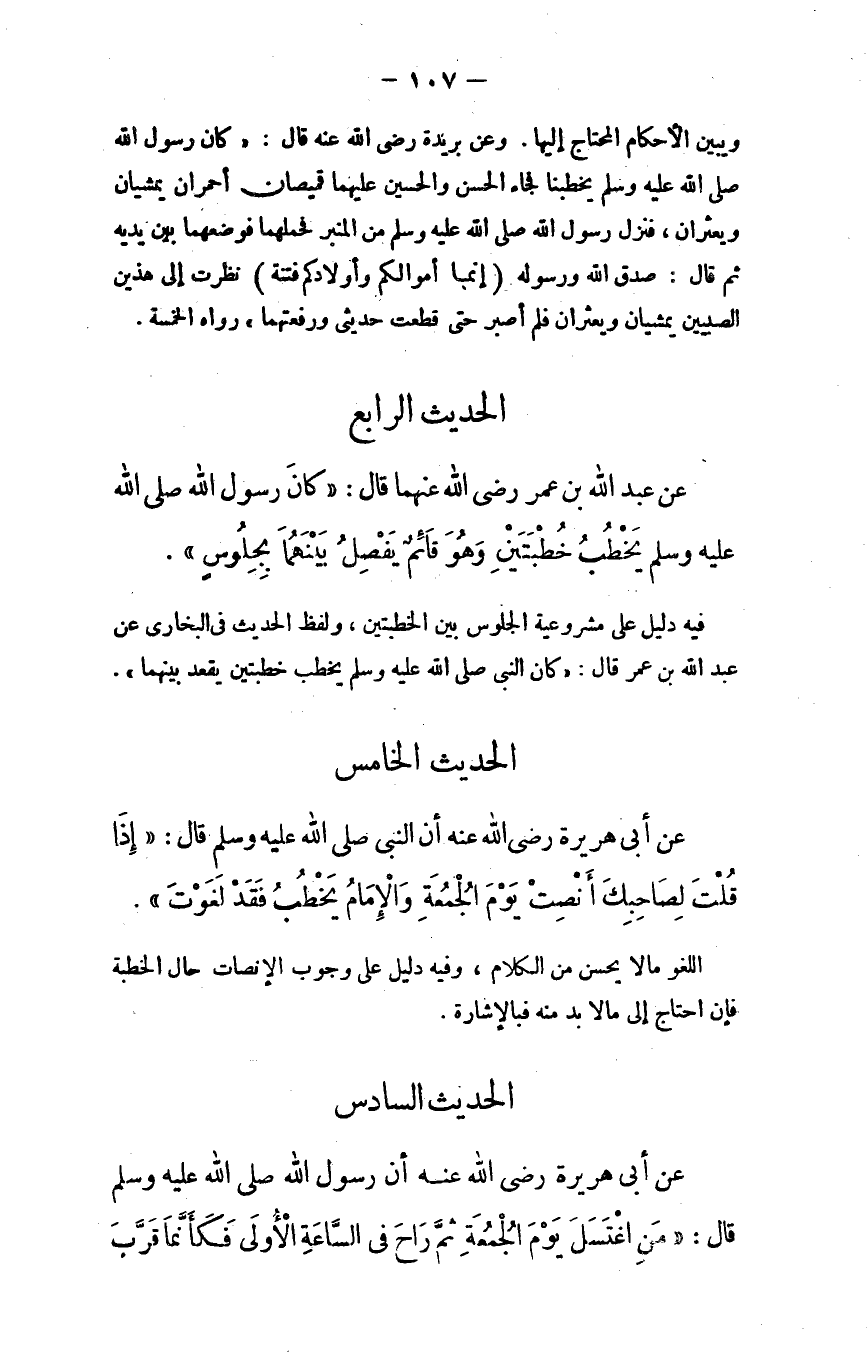 — ١٠٧ —
ويبين الأحكام المحتاج إليها . وعن بريدة رضى الله عنه قال : « كان رسول الله
صلى الله عليه وسلم يخطبنا فجاء الحسن والحسين عليهما قميصان أحمران يمشيان
ويعثران ، فنزل رسول الله صلى الله عليه وسلم من المنبر فحملهما فوضعهما بين يديه
ثم قال : صدق الله ورسوله ( إنما أموالكم وأولادكم فتنة ) نظرت إلى هذين
الصبيين يمشيان ويعثران فلم أصبر حتى قطعت حديثى ورفعتهما » رواه الخمسة .
الحديث الرابع
عن عبد الله بن عمر رضى الله عنهما قال : « كانَ رسول الله صلى الله
عليه وسلم يَخْطُبُ خُطْبَتَيْنِ وَهُوَ قَائِمٌ يَفْصِلُ بَيْنَهُمَا بِجِلُوسٍ » .
فيه دليل على مشروعية الجلوس بين الخطبتين ، ولفظ الحديث فى البخارى عن
عبد الله بن عمر قال : « كان النبى صلى الله عليه وسلم يخطب خطبتين يقعد بينهما » .
الحديث الخامس
عن أبى هريرة رضى الله عنه أن النبى صلى الله عليه وسلم قال : « إِذَا
قُلْتَ لِصَاحِبِكَ أَنْصِتْ يَوْمَ الْجُمُعَةِ وَالْإِمَامُ يَخْطُبُ فَقَدْ لَغَوْتَ » .
اللغو مالا يحسن من الكلام ، وفيه دليل على وجوب الإنصات حال الخطبة
فإن احتاج إلى مالا بد منه فبالإشارة .
الحديث السادس
عن أبى هريرة رضى الله عنـه أن رسول الله صلى الله عليه وسلم
قال : « مَنِ اغْتَسَلَ يَوْمَ الْجُمُعَةِ ثُمَّ رَاحَ فى السَّاعَةِ الْأُولَى فَـكَأَنَّمَا قَرَّبَ